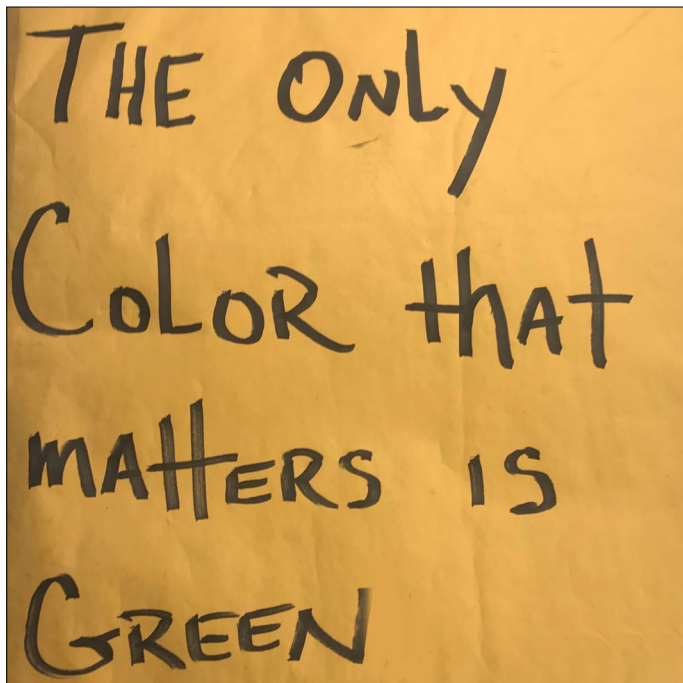 THE ONLY
COLOR thAT
mATTERS IS
GREEN